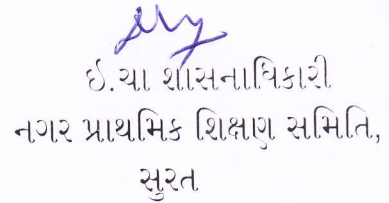 ઇ.ચા શાસનાધિકારી
નગર પ્રાથમિક શિક્ષણ સમિતિ,
સુરત